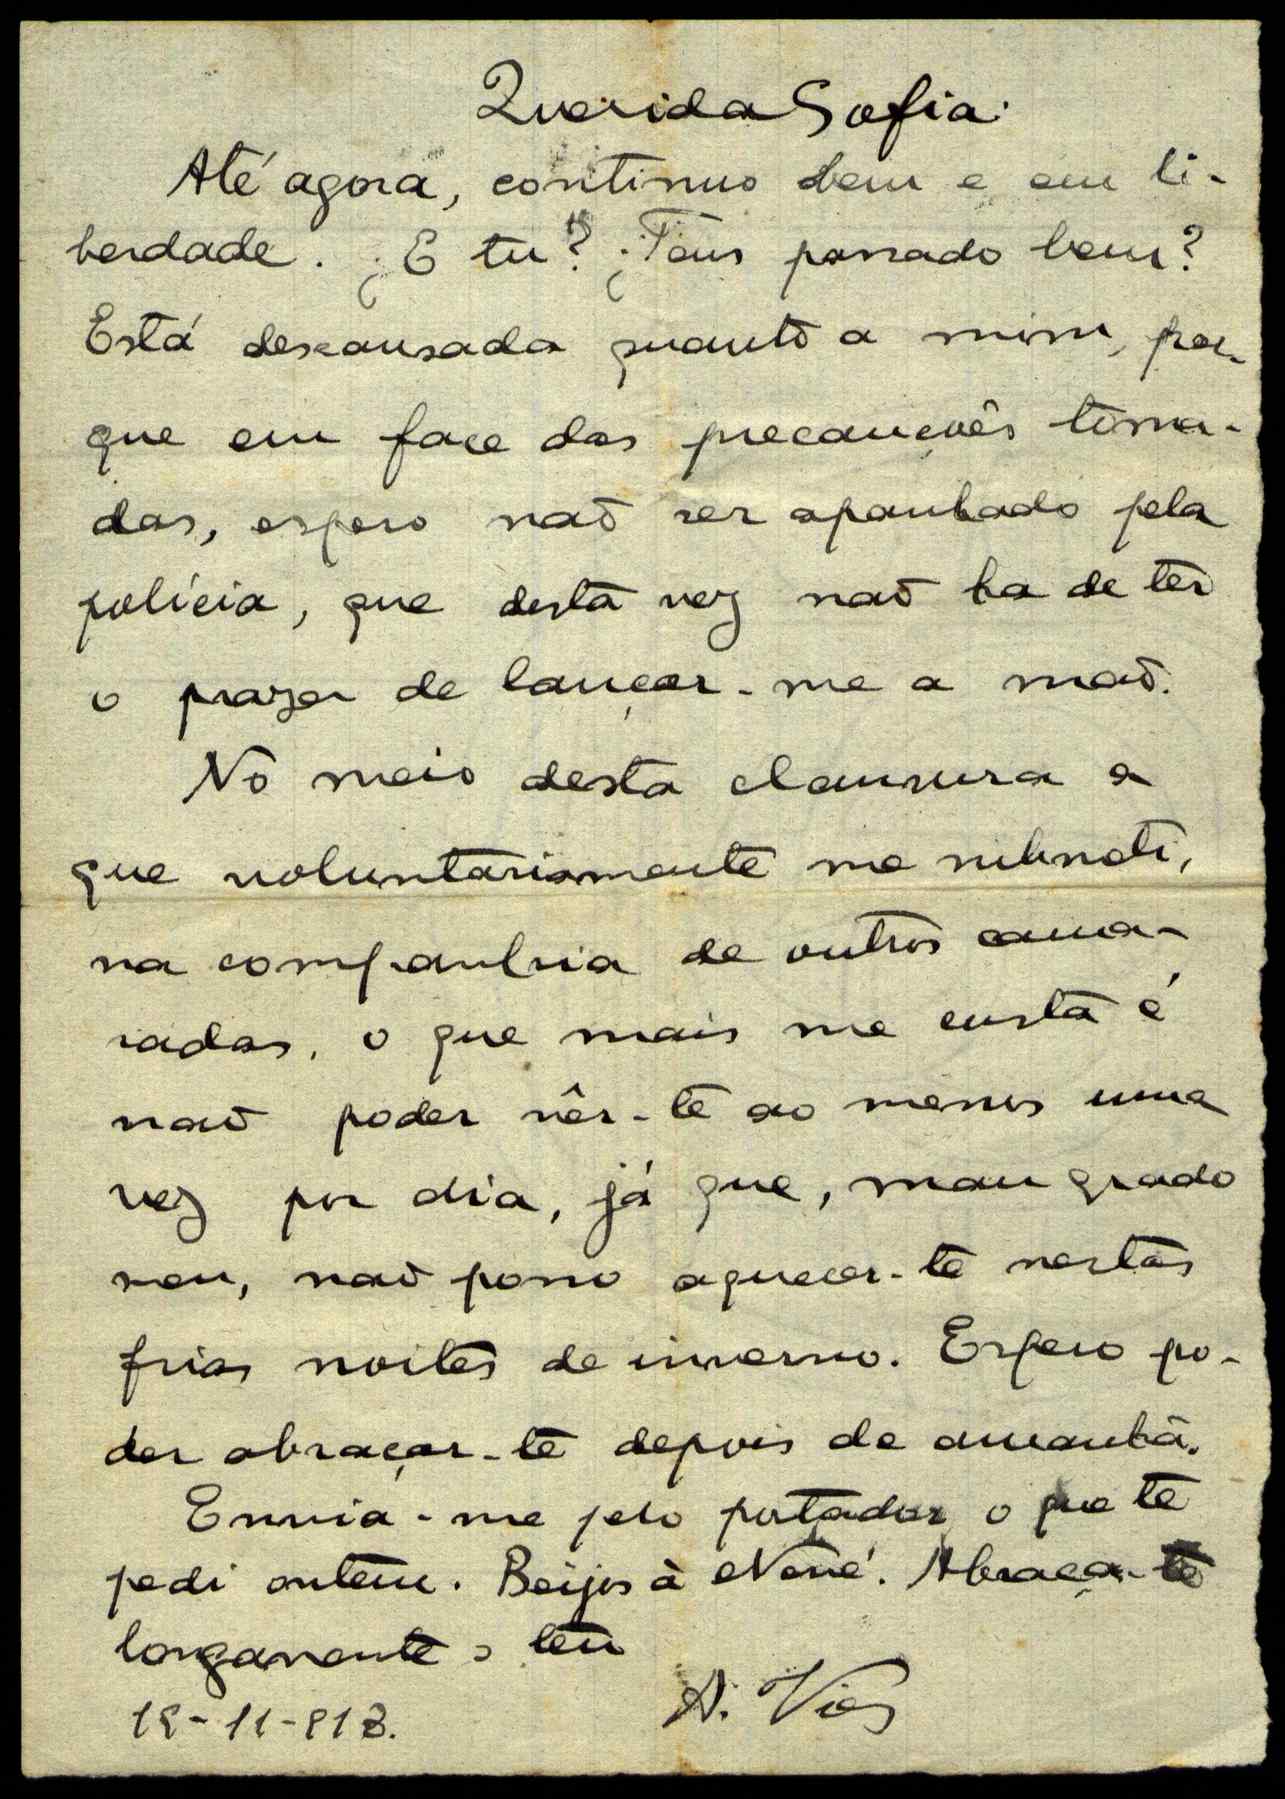 Querida Sofia:
Até agora, continuo bem e em li-
berdade. ¿E tu? ¿Tens passado bem?
Está descansada quanto a mim, por-
que em face das precauções toma-
das, espero naõ ser apanhado pela
polícia, que desta vez naõ ha de ter
o prazer de lançar-me a maõ.
No meio desta clausura a
que voluntariamente me submeti,
na companhia de outros cama-
radas, o que mais me custa é
naõ poder vêr-te ao menos uma
vez por dia, já que, mau grado
meu, naõ posso aquecer-te nestas
frias noites de inverno. Espero po-
der abraçar-te depois de amanhã.
Envia-me pelo portador o que te
pedi ontem. Beijos à Nené. Abraça-te
longamente o teu
A. Vias
19-11-918.